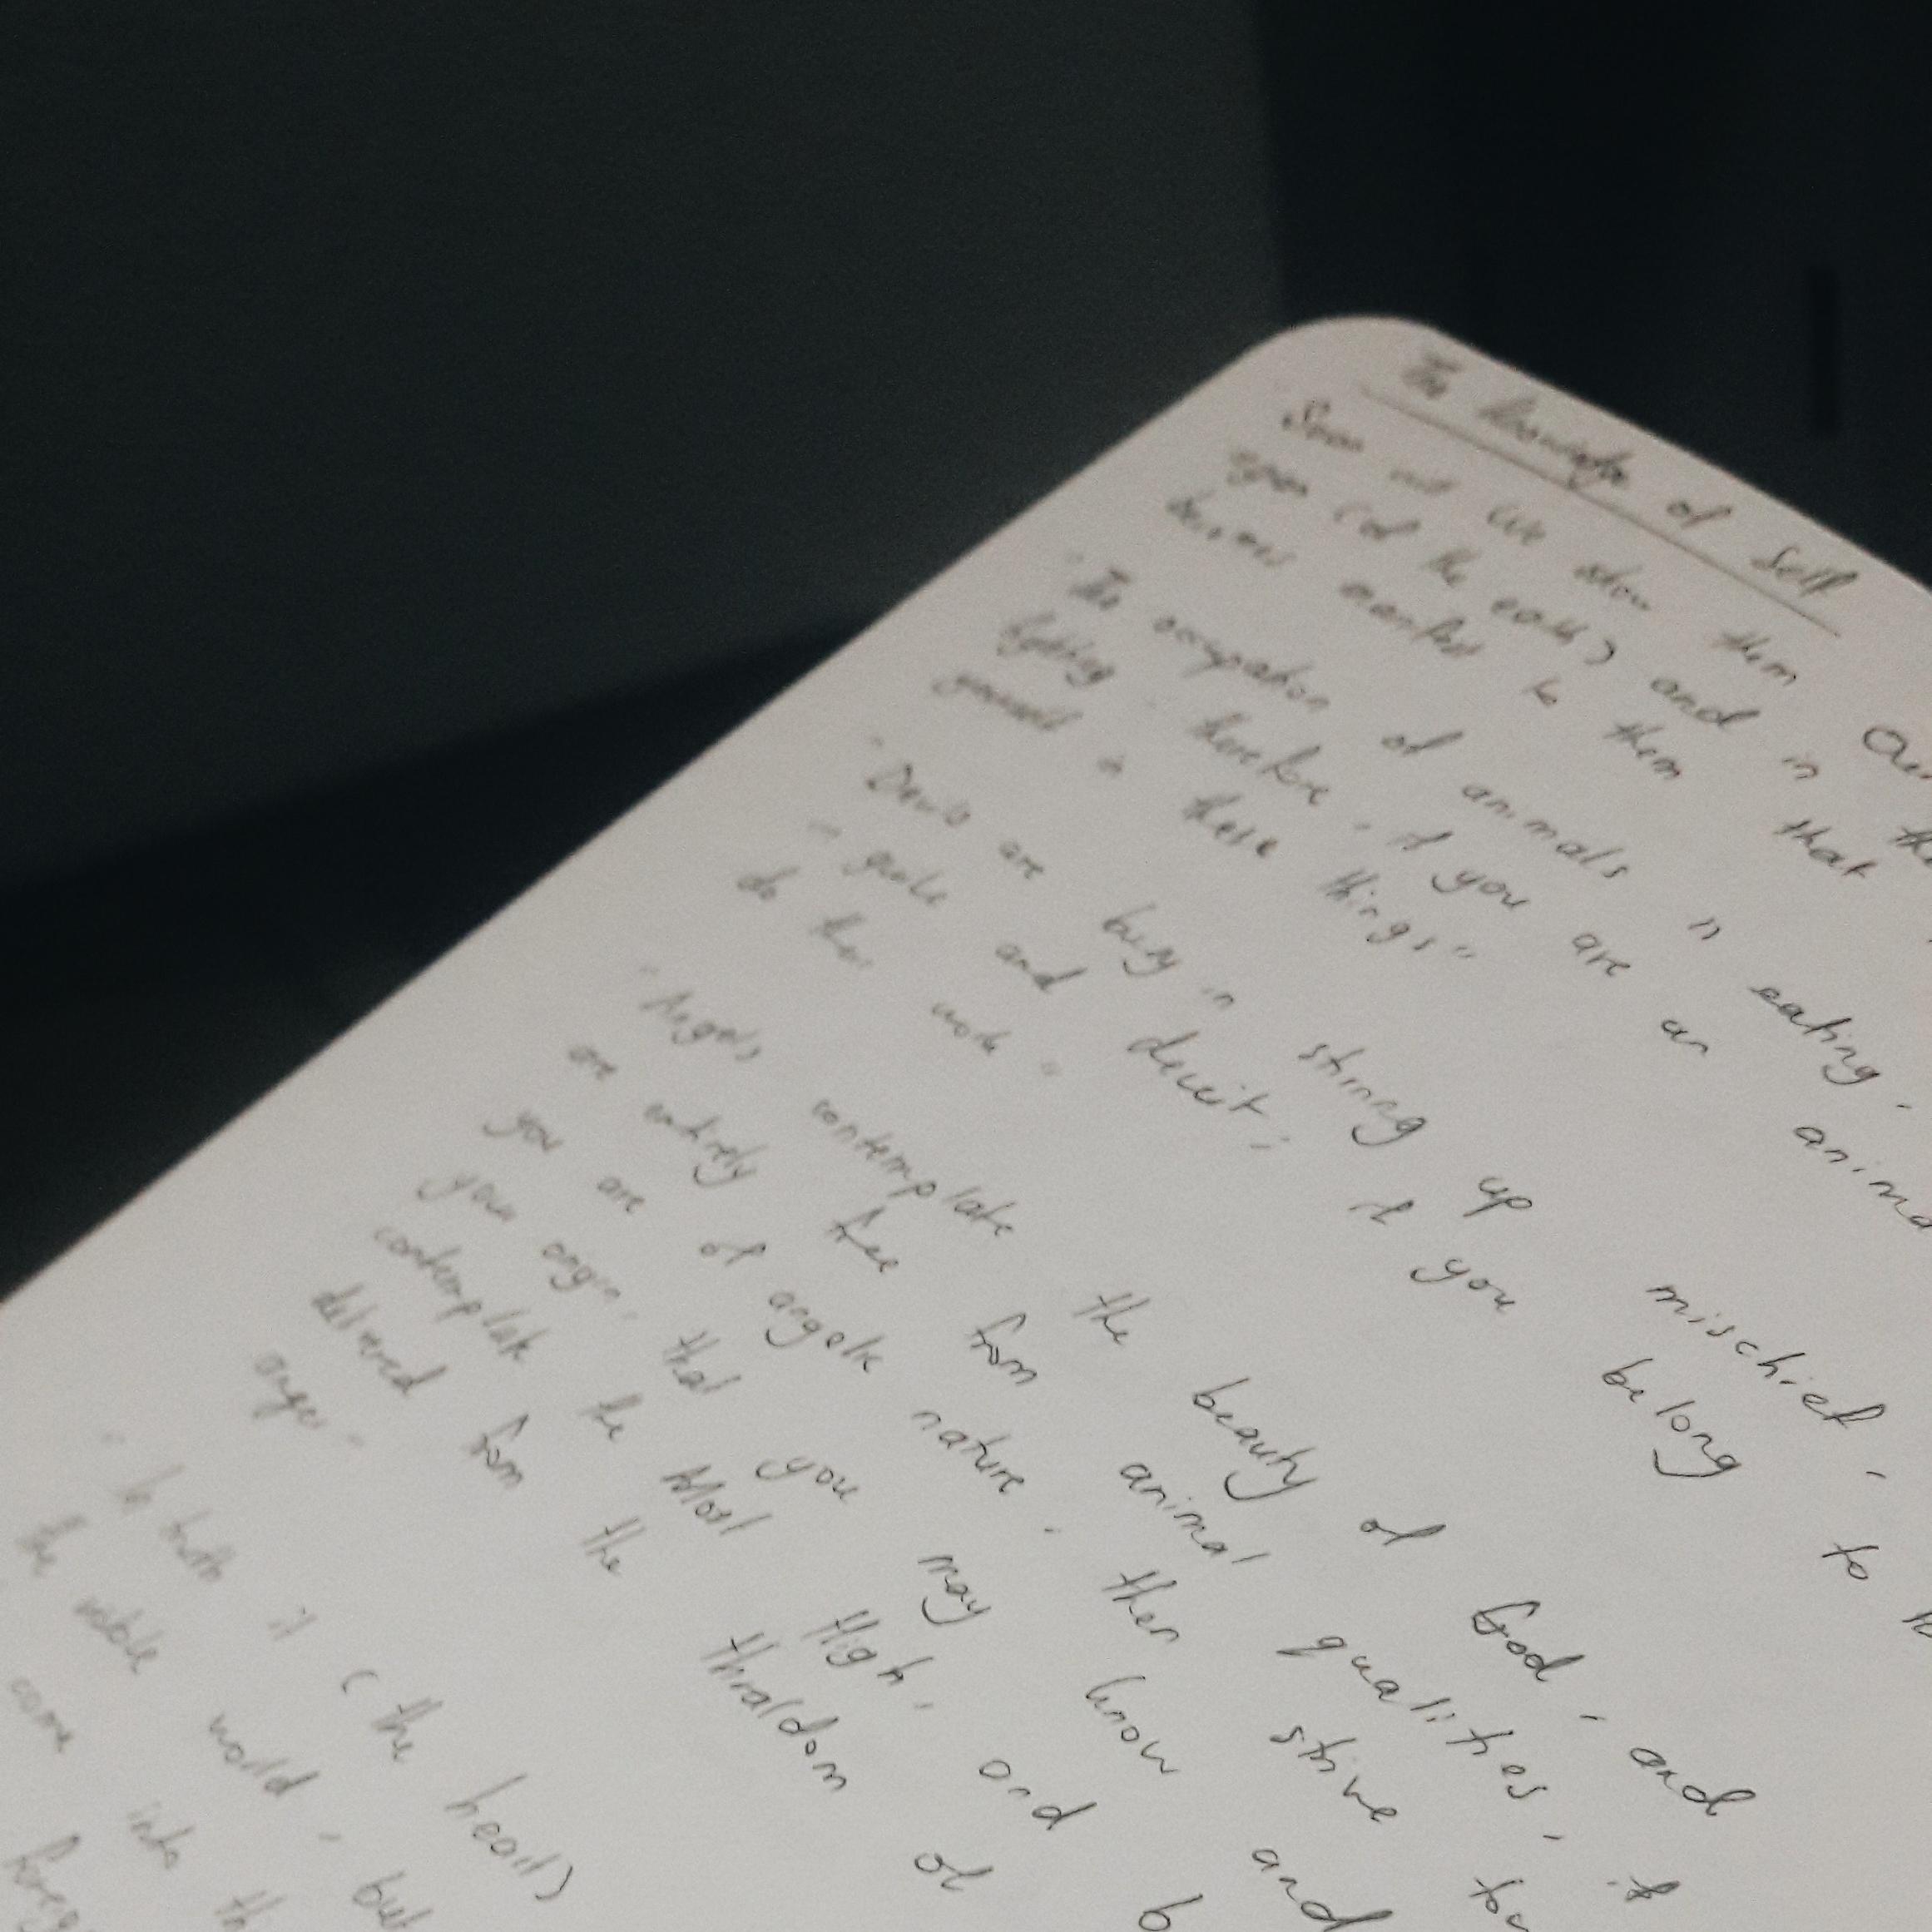 The Knowledge of Self
Soon will We show them Our
(of the earth) and in the
becomes manifest to them that
"The occupation of animals is eating,
fighting. therefore, if you are an anima
yourself in these things"
"Devils are busy in stirring up mischief,
in guile and deceit; if you belong to
do their work"
"Angels contemplate the beauty of God, and
are entirely free from animal qualities, if
you are of angelic nature, then strive
your origin, that you may know and
contemplate the Most High, and
delivered from the thraldom of
anger"
"In truth it (the heart)
the visible world, but
come into